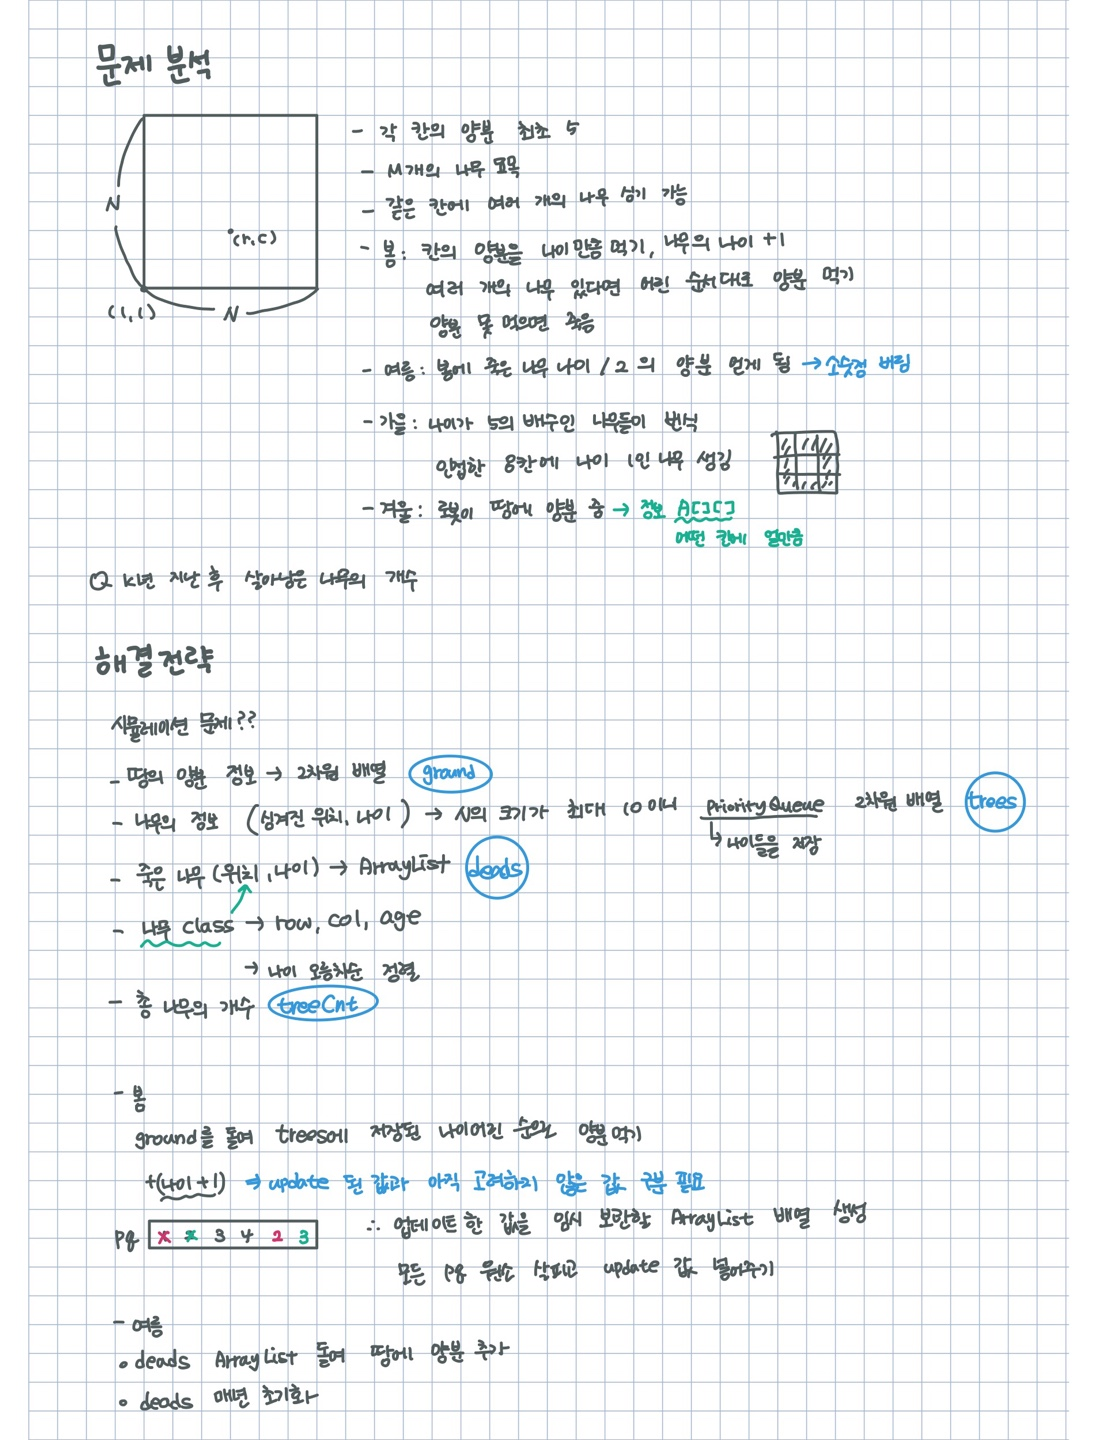 문제 분석
- 각 칸의 양분 최초 5
- M개의 나무 묘목
- 같은 칸에 여러 개의 나무 심기 가능
N
(r,c)
(1,1)
N
- 봄: 칸의 양분을 나이만큼 먹기, 나무의 나이 +1
여러 개의 나무 있다면 어린 순서대로 양분 먹기
양분 못 먹으면 죽음
- 여름: 봄에 죽은 나무 나이 / 2 의 양분 얻게 됨 → 소숫점 버림
- 가을: 나이가 5의 배수인 나무들이 번식
인접한 8칸에 나이 1인 나무 생김
- 겨울: 로봇이 땅에 양분 줌 → 정보 A[][]
어떤 칸에 얼만큼
Q K년 지난 후 살아남은 나무의 개수
해결전략
시뮬레이션 문제??
- 땅의 양분 정보 → 2차원 배열 ground
- 나무의 정보 (심겨진 위치, 나이) → N의 크기가 최대 10이니 PriorityQueue 2차원 배열 trees
↳ 나이들을 저장
- 죽은 나무 (위치, 나이) → ArrayList deads
- 나무 class → row, col, age
→ 나이 오름차순 정렬
- 총 나무의 개수 treeCnt
- 봄
ground를 돌며 trees에 저장된 나이어린 순으로 양분 먹기
+(나이+1) → update 된 값과 아직 고려하지 않은 값 구분 필요
pq 1 2 3 4 2 3
∴ 업데이트 한 값을 임시 보관할 ArrayList 배열 생성
모든 pq 원소 살피고 update 값 넣어주기
- 여름
• deads ArrayList 돌며 땅에 양분 추가
• deads 매년 초기화